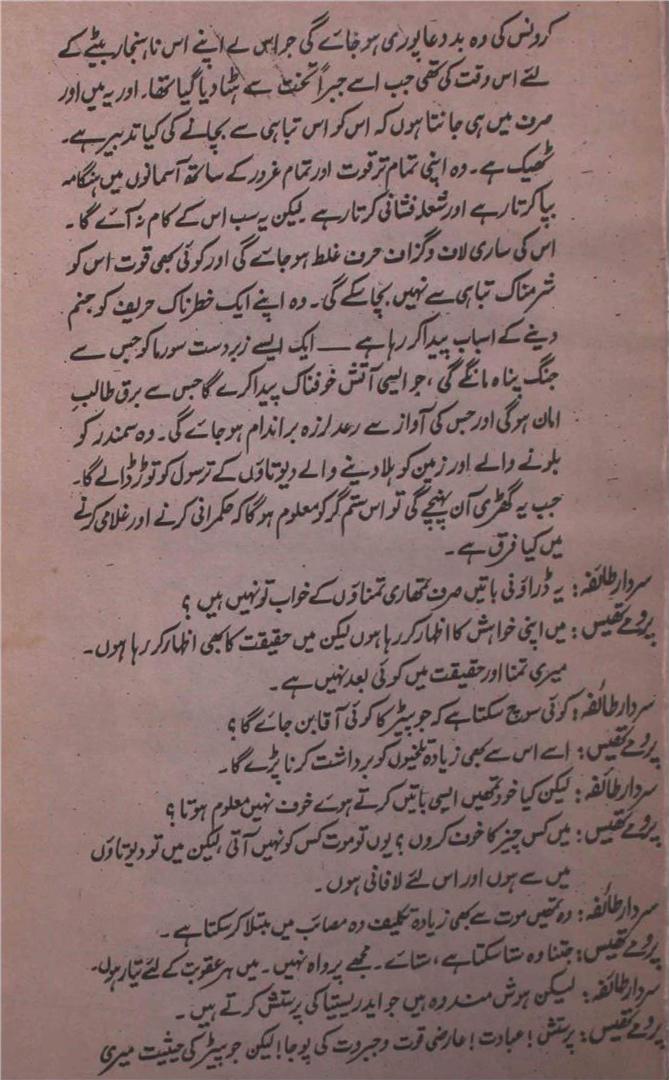 کرونس کی وہ بددعا پوری ہو جائے گی جو اس نے اپنے اس ناہنجار بیٹے کے
لئے اس وقت کی تھی جب اسے جبراً تخت سے ہٹا دیا گیا تھا۔ اور یہ میں اور
صرف میں ہی جانتا ہوں کہ اس کو اس تباہی سے بچانے کی کیا تدبیر ہے۔
ٹھیک ہے۔ وہ اپنی تمام تر قوت اور تمام غرور کے ساتھ آسمانوں میں ہنگامہ
بپا کرتا رہے اور شعلہ فشانی کرتا رہے لیکن یہ سب اس کے کام نہ آئے گا۔
اس کی ساری لاف و گزاف حرف غلط ہو جائے گی اور کوئی بھی قوت اس کو
شرمناک تباہی سے نہیں بچا سکے گی۔ وہ اپنے ایک خطرناک حریف کو جنم
دینے کے اسباب پیدا کر رہا ہے — ایک ایسے زبردست سورما کو جس سے
جنگ پناہ مانگے گی، جو ایسی آتش خوفناک پیدا کرے گا جس سے برق طالبِ
امان ہوگی اور جس کی آواز سے رعد لرزہ براندام ہو جائے گی۔ وہ سمندر کو
بلونے والے اور زمین کو ہلا دینے والے دیوتاؤں کے ترسول کو توڑ ڈالے گا۔
جب یہ گھڑی آن پہنچے گی تو اس ستم گر کو معلوم ہوگا کہ حکمرانی کرنے اور غلامی کرنے
میں کیا فرق ہے۔
سردار طائفہ: یہ ڈراؤنی باتیں صرف تمھاری تمناؤں کے خواب تو نہیں ہیں؟
پرومے تھیس: میں اپنی خواہش کا اظہار کر رہا ہوں لیکن میں حقیقت کا بھی اظہار کر رہا ہوں۔
میری تمنا اور حقیقت میں کوئی بعد نہیں ہے۔
سردار طائفہ: کوئی سوچ سکتا ہے کہ جوپیٹر کا کوئی آقا بن جائے گا؟
پرومے تھیس: اسے اس سے بھی زیادہ تلخیوں کو برداشت کرنا پڑے گا۔
سردار طائفہ: لیکن کیا خود تمھیں ایسی باتیں کرتے ہوئے خوف نہیں معلوم ہوتا؟
پرومے تھیس: میں کس چیز کا خوف کروں؟ یوں تو موت کس کو نہیں آتی، لیکن میں تو دیوتاؤں
میں سے ہوں اور اس لئے لافانی ہوں۔
سردار طائفہ: وہ تمھیں موت سے بھی زیادہ تکلیف دہ مصائب میں مبتلا کر سکتا ہے۔
پرومے تھیس: جتنا وہ ستا سکتا ہے، ستائے۔ مجھے پرواہ نہیں۔ میں ہر عقوبت کے لئے تیار ہوں۔
سردار طائفہ: لیکن ہوش مند وہ ہیں جو ایدریستیا کی پرستش کرتے ہیں۔
پرومے تھیس: پرستش! عبادت! عارضی قوت و جبروت کی پوجا! لیکن جوپیٹر کی حیثیت میری